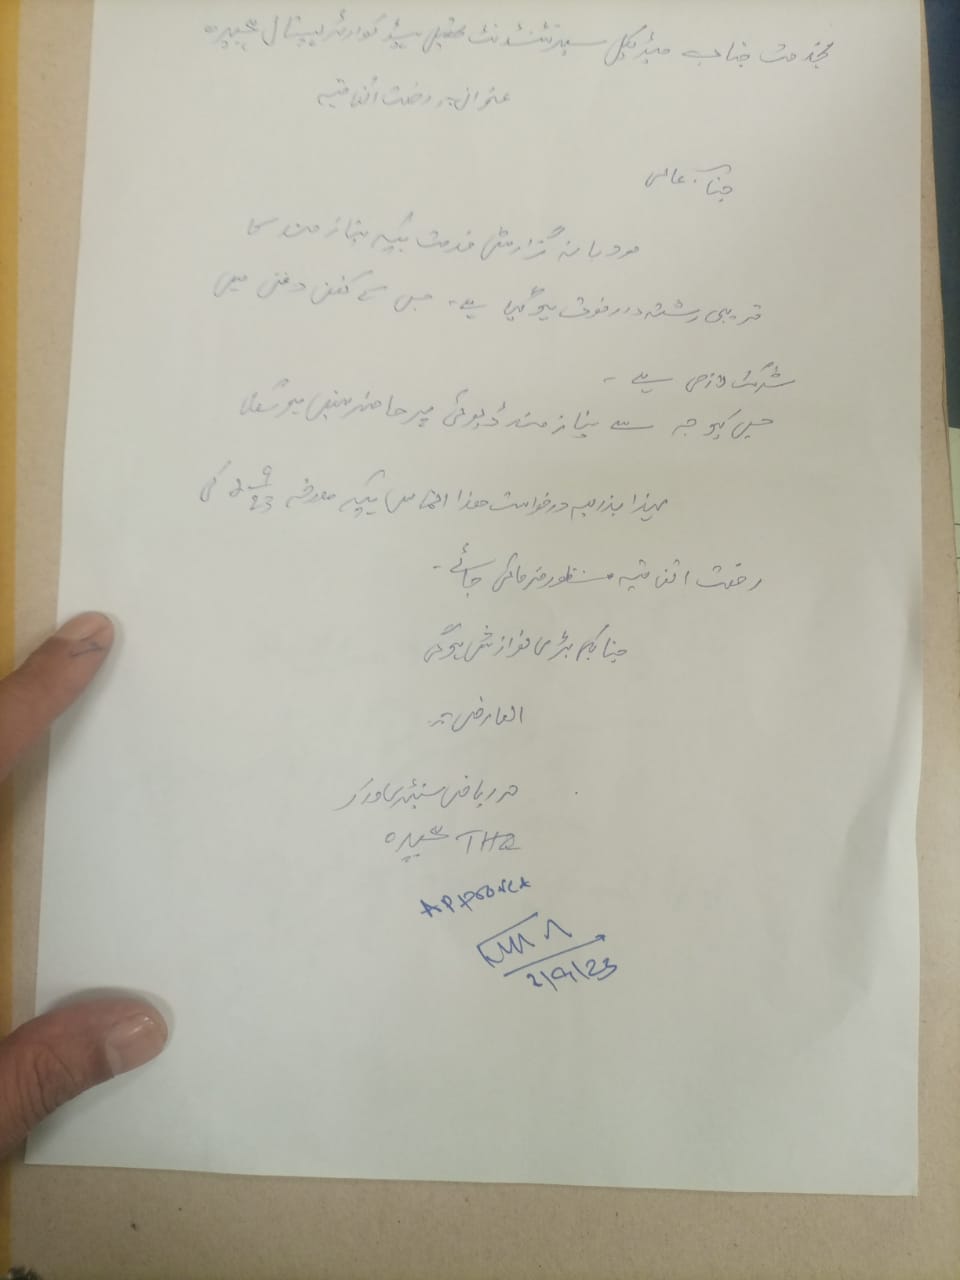 بخدمت جناب میڈیکل سپرنٹنڈنٹ تحصیل ہیڈ کوارٹر ہسپتال
عنوان:۔ رخصت اتفاقیہ
جناب عالی
مودبانہ گزارش خدمت ہیکہ نیاز مند کا
قریبی رشتہ دار فوت ہوگیا ہے۔ جس کے کفن دفن میں
شرکت لازمی ہے۔
جس کیوجہ سے نیاز مند ڈیوٹی پر حاضر نہیں ہو سکتا
لہذا بذریعہ درخواست ھذا التماس ہیکہ مورخہ 2 9/23 کی
رخصت اتفاقیہ منظور فرمائی جائے۔
جناب کی بڑی نوازش ہوگی
العارض:۔
THQ
Approved
2/9/23